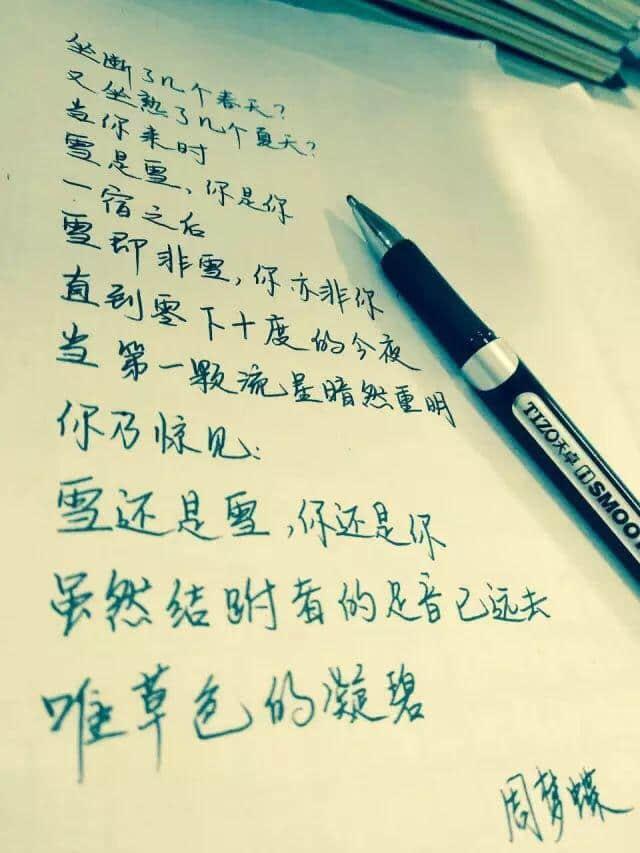 坐断了几个春天?
又坐熟了几个夏天?
当你来时
雪是雪,你是你
一宿之后
雪即非雪,你亦非你
直到零下十度的今夜
当第一颗流星暗然重明
你乃惊见:
雪还是雪,你还是你
虽然结跏者的足音已远去
唯草色的凝碧
周梦蝶
TIZO天卓 SMOO